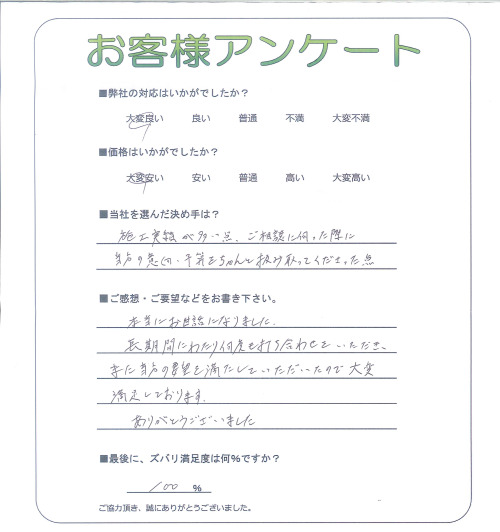 お客様アンケート
■弊社の対応はいかがでしたか？
大変良い 良い 普通 不満 大変不満
■価格はいかがでしたか？
大変安い 安い 普通 高い 大変高い
■当社を選んだ決め手は？
施工実績が多い点、ご相談に伺った際に
当方の意向・予算をちゃんと汲み取ってくださった点
■ご感想・ご要望などをお書き下さい。
本当にお世話になりました。
長期間にわたり何度も打ち合わせをいただき、
当方の要望を満たしていただいたので大変
満足しております。
ありがとうございました
■最後に、ズバリ満足度は何%ですか？
100 %
ご協力頂き、誠にありがとうございました。